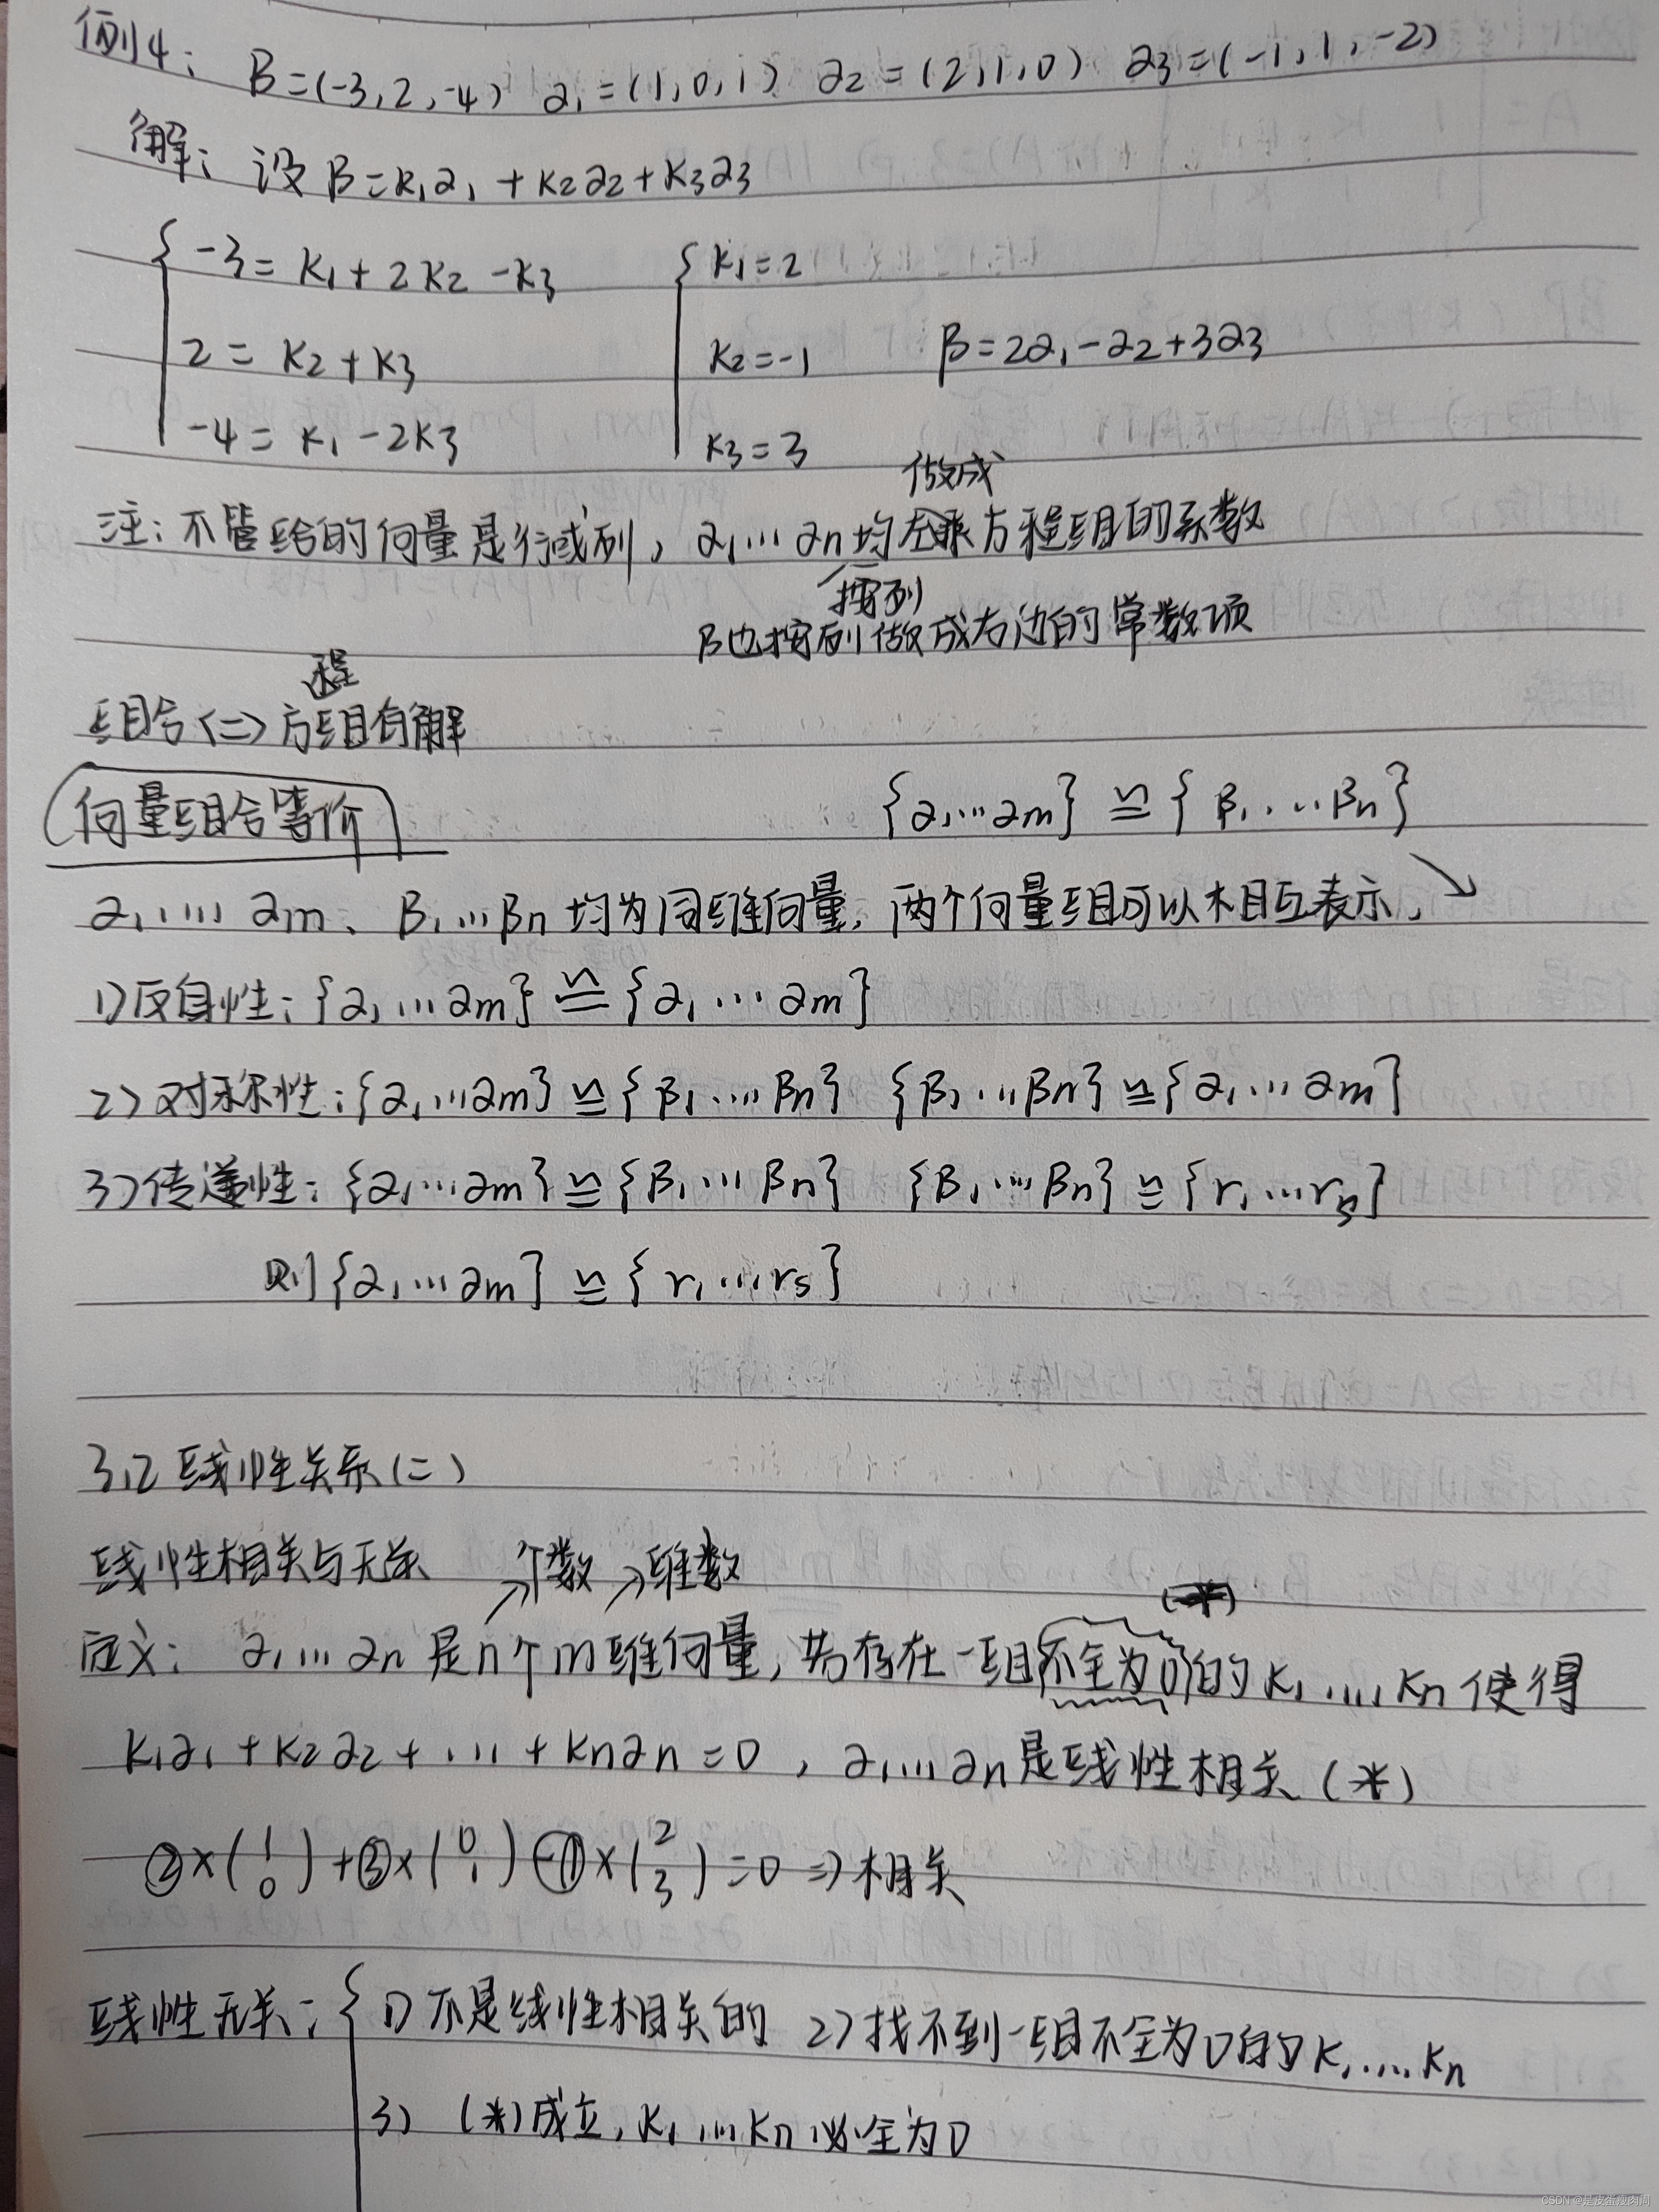 例4: β=(-3,2,-4) α₁=(1,0,1) α₂=(2,1,0) α₃=(-1,1,-2)
解: 设β=k₁α₁+k₂α₂+k₃α₃
-3=k₁+2k₂-k₃ k₁=2
2=k₂+k₃ k₂=-1 β=2α₁-α₂+3α₃
-4=k₁-2k₃ k₃=3
做成
注:不管给的向量是行或列, α₁…αn均 方程组的系数
按列
β也按列做成右边的常数项
程
组合<=>方组有解
向量组合等价 {α₁…αm}≌{β₁…βn}
α₁…αm、β₁…βn均为同维向量,两个向量组可以相互表示,
1)反身性:{α₁…αm}≌{α₁…αm}
2)对称性:{α₁…αm}≌{β₁…βn} {β₁…βn}≌{α₁…αm}
3)传递性:{α₁…αm}≌{β₁…βn} {β₁…βn}≌{r₁…rs}
则{α₁…αm}≌{r₁…rs}
3.2线性关系(二)
线性相关与无关 →个数 →维数
定义: α₁…αn是n个m维向量,若存在一组不全为0的k₁,…,kn使得
k₁α₁+k₂α₂+…+knαn=0,α₁…αn是线性相关(*)
②×(1 0)+③×(0 1)-①×(2 3)=0⇒相关
线性无关:{1)不是线性相关的 2)找不到一组不全为0的k₁,…,kn
3) (*)成立,k₁…kn必全为0
CSDN @是皮蛋瘦肉周